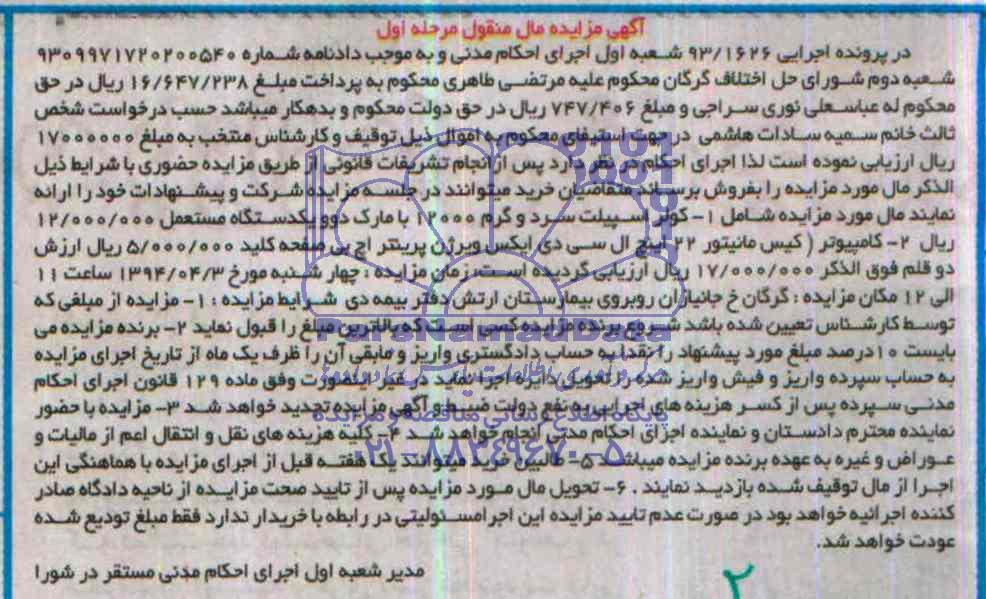 آگهی مزایده مال منقول مرحله اول
در پرونده اجرایی ۹۳/۱۶۲۶ شعبه اول اجرای احکام مدنی و به موجب دادنامه شماره ۹۳۰۹۹۷۱۷۲۰۲۰۰۵۴۰
شعبه دوم شورای حل اختلاف گرگان محکوم علیه مرتضی طاهری محکوم به پرداخت مبلغ ۱۶/۶۴۷/۲۳۸ ریال در حق
محکوم له عباسعلی نوری سراجی و مبلغ ۷۴۷/۴۰۶ ریال در حق دولت محکوم و بدهکار میباشد حسب درخواست شخص
ثالث خانم سمیه سادات هاشمی در جهت استیفای محکوم به اموال ذیل توقیف و کارشناس منتخب به مبلغ ۱۷۰۰۰۰۰۰
ریال ارزیابی نموده است لذا اجرای احکام در نظر دارد پس از انجام تشریفات قانونی از طریق مزایده حضوری با شرایط ذیل
الذکر مال مورد مزایده را بفروش برساند متقاضیان خرید میتوانند در جلسه مزایده شرکت و پیشنهادات خود را ارائه
نمایند مال مورد مزایده شامل ۱- کولر اسپیلت سرد و گرم ۱۲۰۰۰ با مارک دوو یکدستگاه مستعمل ۱۲/۰۰۰/۰۰۰
ریال ۲- کامپیوتر ( کیس مانیتور ۲۲ اینچ ال سی دی ایکس ویرژن پرینتر اچ پی صفحه کلید ۵/۰۰۰/۰۰۰ ریال ارزش
دو قلم فوق الذکر ۱۷/۰۰۰/۰۰۰ ریال ارزیابی گردیده است. زمان مزایده : چهار شنبه مورخ ۱۳۹۴/۰۴/۳ ساعت ۱۱
الی ۱۲ مکان مزایده : گرگان خ جانبازان روبروی بیمارستان ارتش دفتر بیمه دی شرایط مزایده : ۱- مزایده از مبلغی که
توسط کارشناس تعیین شده باشد شروع برنده مزایده کسی است که بالاترین مبلغ را قبول نماید ۲- برنده مزایده می
بایست ۱۰درصد مبلغ مورد پیشنهاد را نقدا به حساب دادگستری واریز و مابقی آن را ظرف یک ماه از تاریخ اجرای مزایده
به حساب سپرده واریز و فیش واریز شده را تحویل دایره اجرا نماید در غیر اینصورت وفق ماده ۱۲۹ قانون اجرای احکام
مدنی سپرده پس از کسر هزینه های اجرایی به نفع دولت ضبط و آگهی مزایده تجدید خواهد شد ۳- مزایده با حضور
نماینده محترم دادستان و نماینده اجرای احکام مدنی انجام خواهد شد ۴- کلیه هزینه های نقل و انتقال اعم از مالیات و
عوراض و غیره به عهده برنده مزایده میباشد ۵- طالبین خرید میتوانند یک هفته قبل از اجرای مزایده با هماهنگی این
اجرا از مال توقیف شده بازدید نمایند . ۶- تحویل مال مورد مزایده پس از تایید صحت مزایده از ناحیه دادگاه صادر
کننده اجرائیه خواهد بود در صورت عدم تایید مزایده این اجرا مسئولیتی در رابطه با خریدار ندارد فقط مبلغ تودیع شده
عودت خواهد شد.
مدیر شعبه اول اجرای احکام مدنی مستقر در شورا
۲
ParsNamadData
پایگاه اطلاع رسانی مناقصه و مزایده
۰۲۱-۸۸۳۴۹۶۷۰-۵